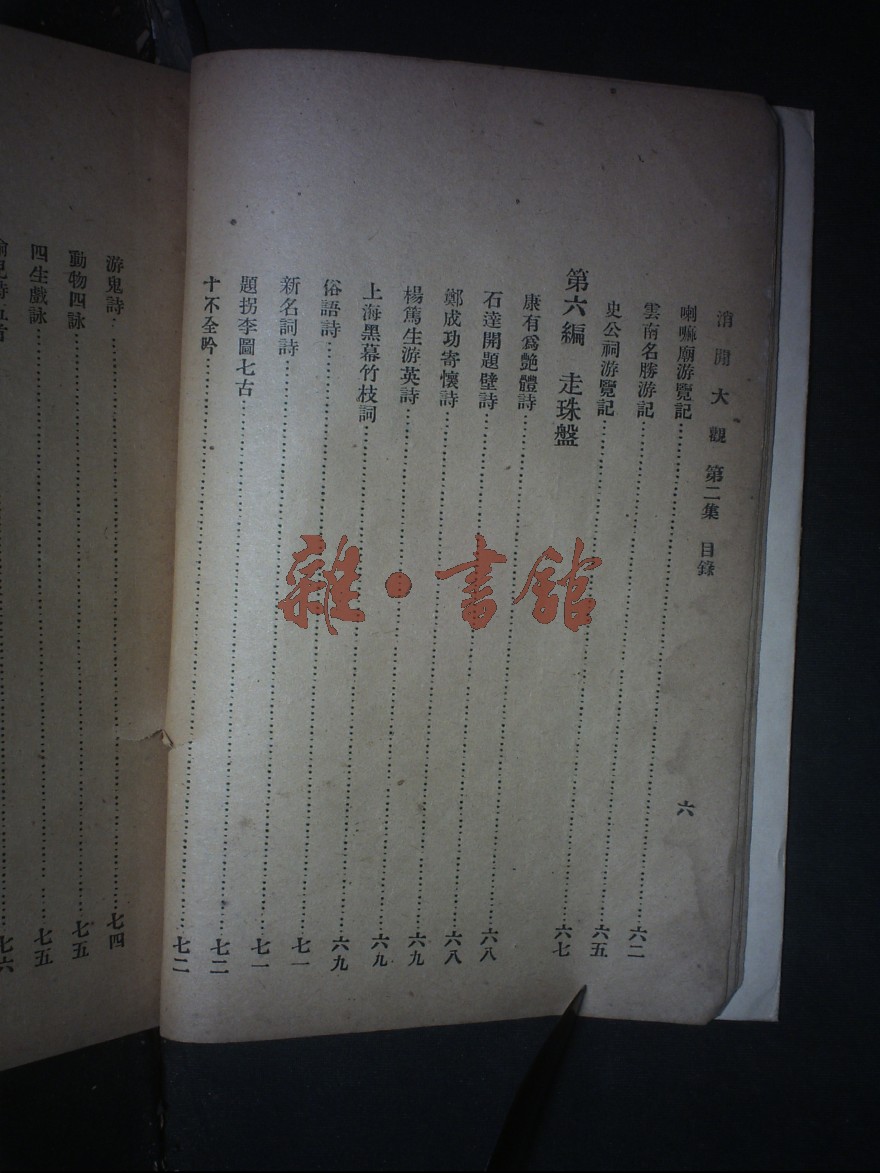 消閒大觀 第二集 目錄 六
喇嘛廟游覽記…………六二
雲南名勝游記…………六五
史公祠游覽記…………六七
第六編 走珠盤
康有爲艷體詩…………六八
石達開題壁詩…………六八
鄭成功寄懷詩…………六九
楊篤生游英詩…………六九
上海黑幕竹枝詞…………六九
俗語詩…………七一
新名詞詩…………七一
題拐李圖七古…………七二
十不全吟…………七二
游鬼詩…………七四
動物四詠…………七五
四生戲詠…………七五
詩五首…………七六
雜·書館